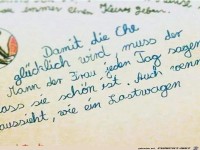 immer einen
Damit die Ehe
glücklich wird, muss der
Mann der Frau jeden Tag sagen
dass sie schön ist. Auch wenn
aussieht, wie ein Lastwagen